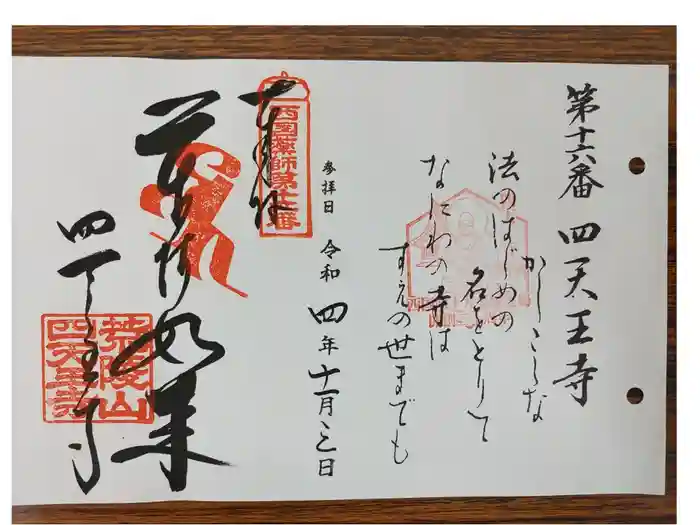 第十六番 四天王寺
かしこしな
法のはじめの
名をとりて
なにわの寺は
すえの世までも
参拝日 令和四年十一月三日
奉拝
西国薬師第十六番
薬師如来
四天王寺
荒陵山
四天王寺